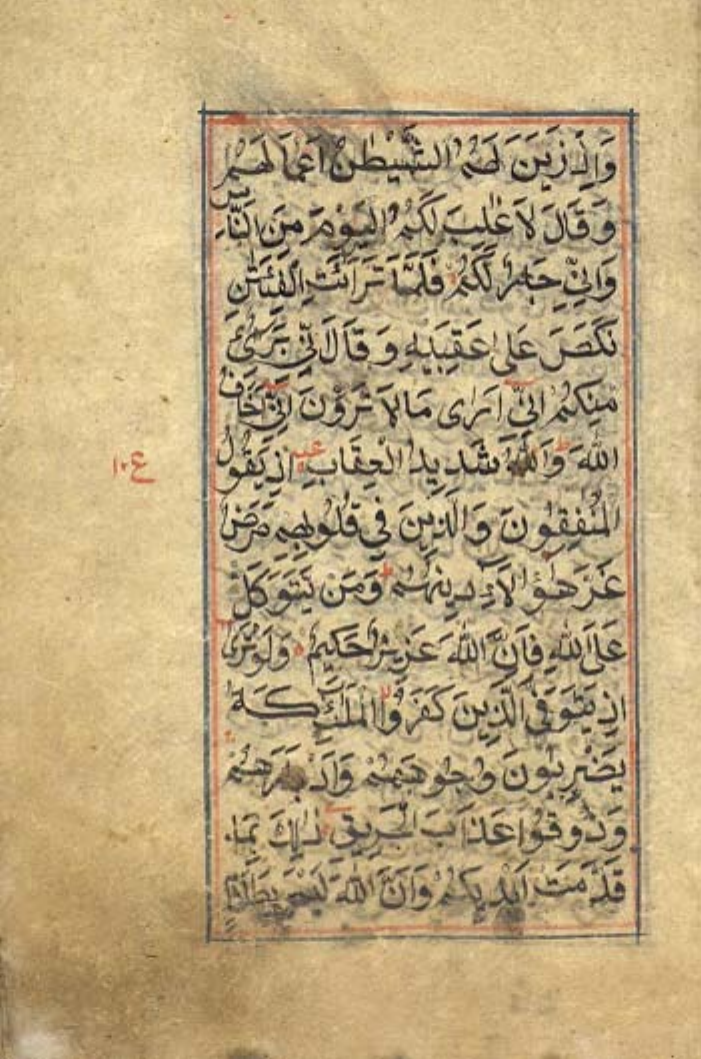 وَاِذْ زَيَّنَ لَهُمُ الشَّيْطٰنُ اَعْمَالَهُمْ
وَقَالَ لَا غَالِبَ لَكُمُ الْيَوْمَ مِنَ النَّاسِ
وَاِنِّي جَارٌ لَكُمْ فَلَمَّا تَرَائَتِ الْفِئَتٰنِ
نَكَصَ عَلٰى عَقِبَيْهِ وَقَالَ اِنِّي بَرِىءٌ
مِنْكُمْ اِنِّي اَرٰى مَا لَا تَرَوْنَ اِنِّي اَخَافُ
اللّٰهَ ط وَاللّٰهُ شَدِيدُ الْعِقَابِ اِذْ يَقُولُ
ع١٠
الْمُنٰفِقُونَ وَالَّذِينَ فِي قُلُوبِهِمْ مَرَضٌ
غَرَّ هٰؤُلَاۤءِ دِينُهُمْ ط وَمَنْ يَتَوَكَّلْ
عَلَى اللّٰهِ فَاِنَّ اللّٰهَ عَزِيزٌ حَكِيمٌ وَلَوْ تَرٰى
اِذْ يَتَوَفَّى الَّذِينَ كَفَرُوا لا الْمَلٰۤئِكَةُ
يَضْرِبُونَ وُجُوهَهُمْ وَاَدْبَارَهُمْ
وَذُوقُوا عَذَابَ الْحَرِيقِ ذٰلِكَ بِمَا
قَدَّمَتْ اَيْدِيكُمْ وَاَنَّ اللّٰهَ لَيْسَ بِظَلَّامٍ